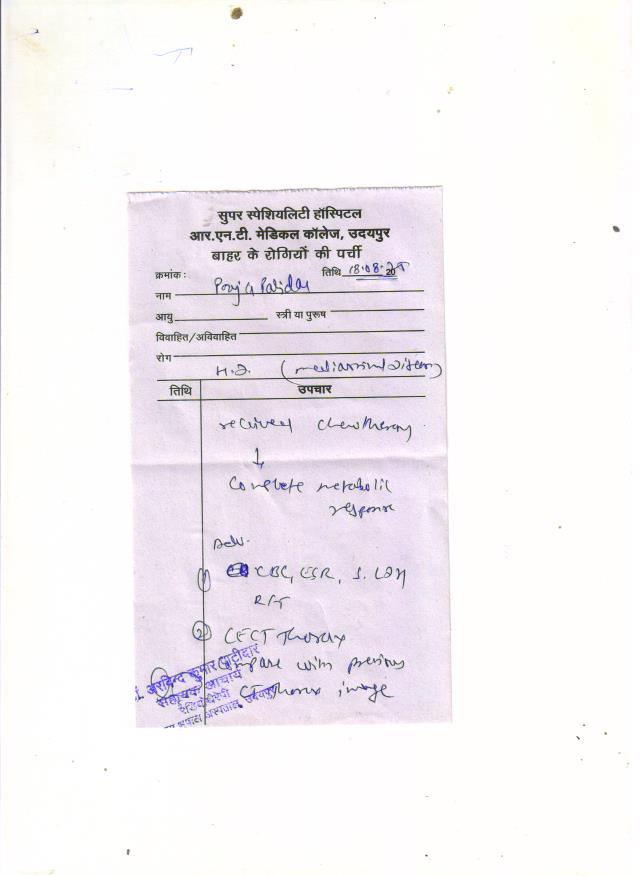 सुपर स्पेशियलिटी हॉस्पिटल
आर.एन.टी. मेडिकल कॉलेज, उदयपुर
बाहर के रोगियों की पर्ची
क्रमांक : तिथि 18.08.20
नाम Pooja Patidar
आयु स्त्री या पुरूष
विवाहित/अविवाहित
रोग
H.D. (mediastinal disease)
तिथि उपचार
received chemotherapy
↓
Complete metabolic
response
Adv.
① CBC, ESR, S. LDH
RFT
② CECT Thorax
Compare with previous
CT Thorax image
डॉ. अरविन्द कुमार पाटीदार
सहायक आचार्य
रेडियोथैरेपी
भूपाल अस्पताल, उदयपुर